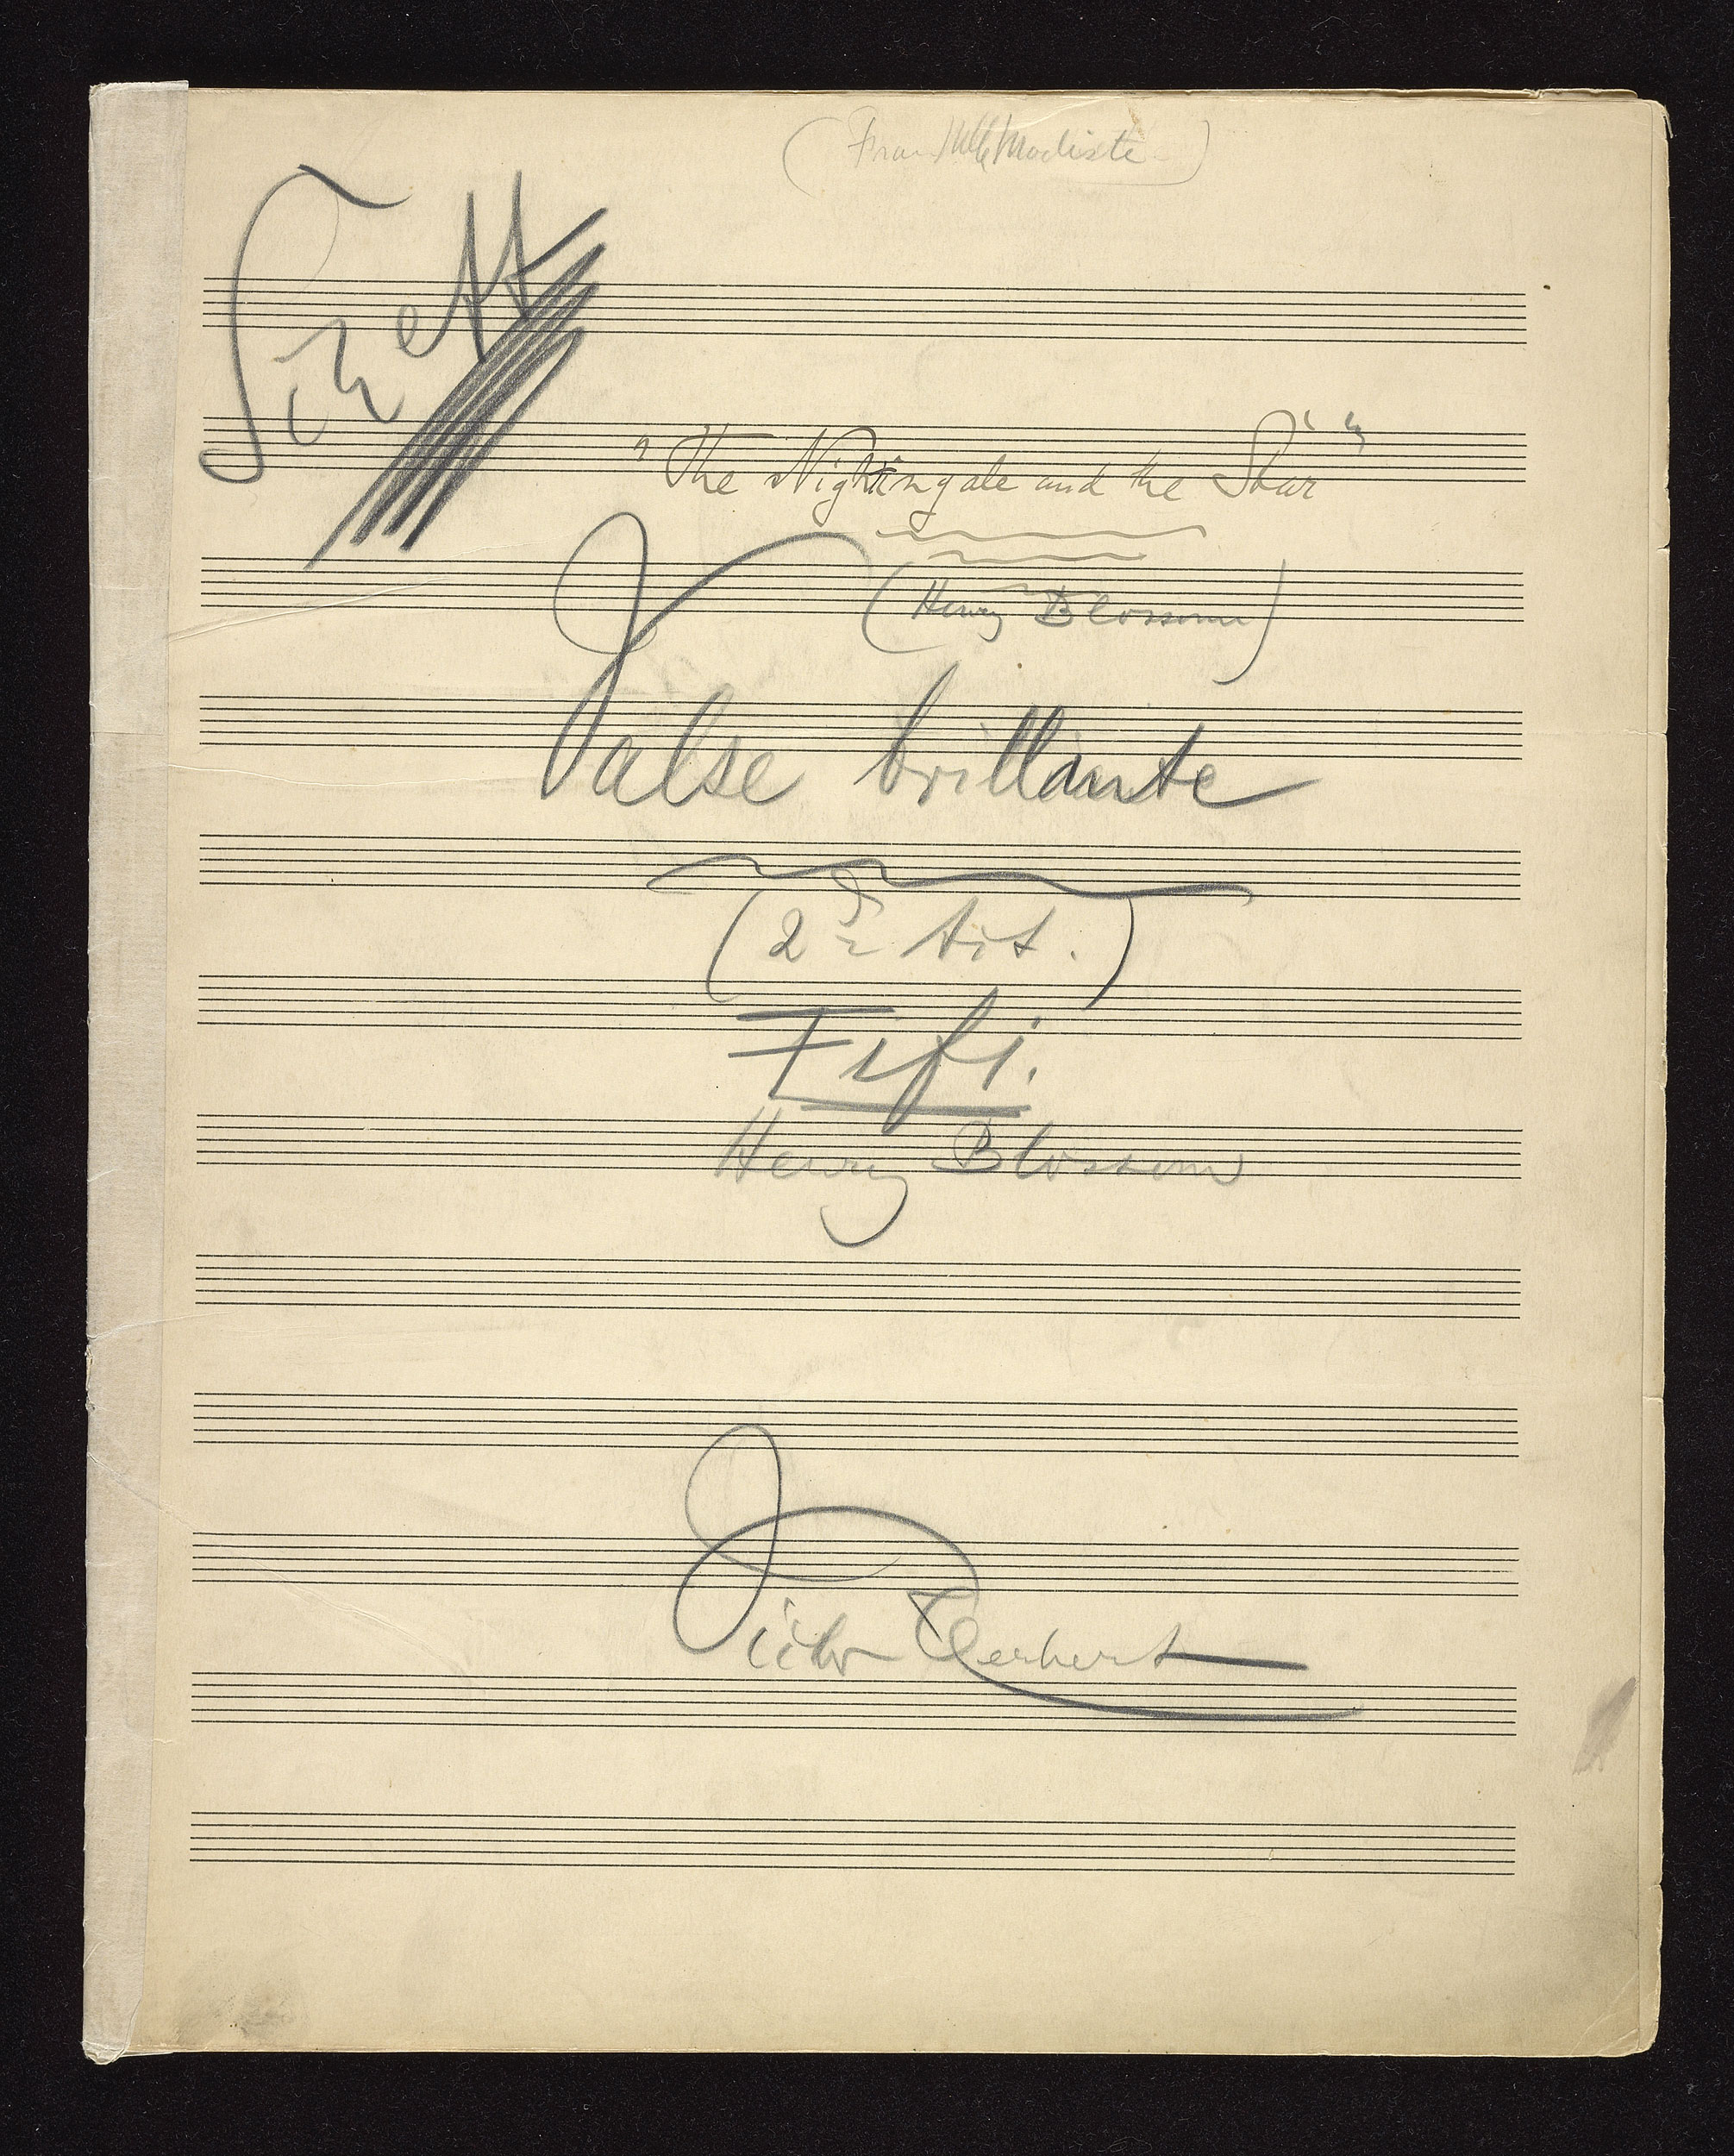 (From Mlle Modiste)
"The Nightingale and the Star"
(Henry Blossom)
Valse brillante
(2nd Act.)
Fifi.
Henry Blossom
Victor Herbert